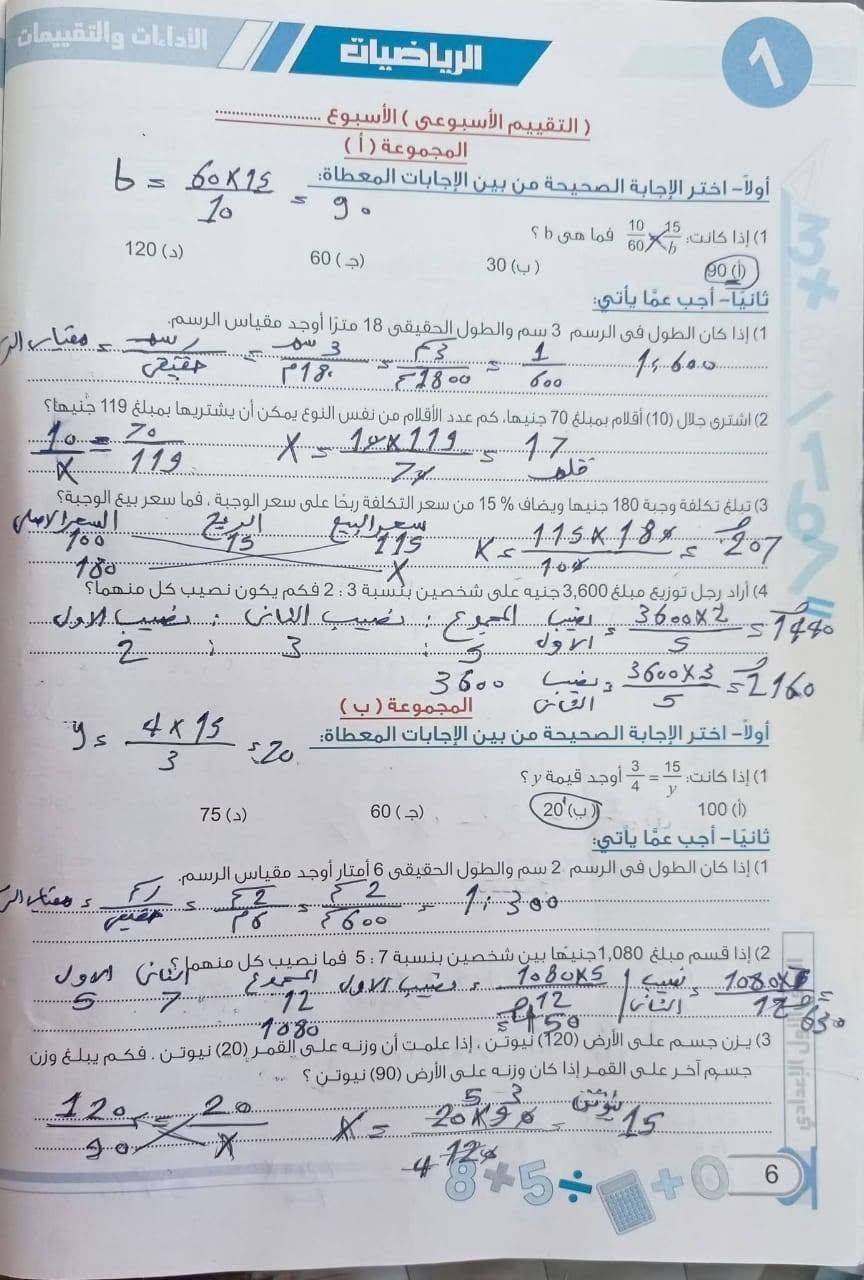 1
الرياضيات
الأداءات والتقييمات
( التقييم الأسبوعى ) الأسبوع ........................
المجموعة ( أ )
أولاً- اختر الإجابة الصحيحة من بين الإجابات المعطاة:
b = 60×15 / 10 = 90
1) إذا كانت: 10/60 = 15/b فما هى b ؟
(أ) 90 (ب) 30 (جـ) 60 (د) 120
ثانيًا- أجب عمَّا يأتي:
1) إذا كان الطول فى الرسم 3 سم والطول الحقيقى 18 مترًا أوجد مقياس الرسم.
= رسم / حقيقي = 3 سم / 18 م = 3 سم / 1800 سم = 1 / 600 1:600
2) اشترى جلال (10) أقلام بمبلغ 70 جنيها، كم عدد الأقلام من نفس النوع يمكن أن يشتريها بمبلغ 119 جُنيها؟
10 / X = 70 / 119 X = 10×119 / 70 = 17 قلم
3) تبلغ تكلفة وجبة 180 جنيها ويضاف % 15 من سعر التكلفة ربحًا على سعر الوجبة ، فما سعر بيع الوجبة؟
السعر الاصلى الربح سعر البيع
100 15 115 X = 115×180 / 100 = 207
180 X
4) أراد رجل توزيع مبلغ 3,600 جنيه على شخصين بنسبة 3 : 2 فكم يكون نصيب كل منهما؟
نصيب الاول : نصيب الثانى : المجموع نصيب الاول = 3600×2 / 5 = 1440
2 : 3 : 5
3600 نصيب الثانى = 3600×3 / 5 = 2160
المجموعة ( ب )
أولاً- اختر الإجابة الصحيحة من بين الإجابات المعطاة:
y = 4×15 / 3 = 20
1) إذا كانت: 3/4 = 15/y أوجد قيمة y ؟
(أ) 100 (ب) 20 (جـ) 60 (د) 75
ثانيًا- أجب عمَّا يأتي:
1) إذا كان الطول فى الرسم 2 سم والطول الحقيقى 6 أمتار أوجد مقياس الرسم.
= رسم / حقيقي = 2 سم / 6 م = 2 سم / 600 سم = 1:300
2) إذا قسم مبلغ 1,080 جنيهًا بين شخصين بنسبة 7 : 5 فما نصيب كل منهما؟
الاول الثانى المجموع نصيب الاول = 1080×5 / 12 = 450 نصيب الثانى = 1080×7 / 12 = 630
5 7 12
1080
3) يزن جسم على الأرض (120) نيوتن ، إذا علمت أن وزنه على القمر (20) نيوتن . فكم يبلغ وزن
جسم آخر على القمر إذا كان وزنه على الأرض (90) نيوتن ؟
120 / 90 = 20 / X X = 20×90 / 120 = 15 نيوتن
6